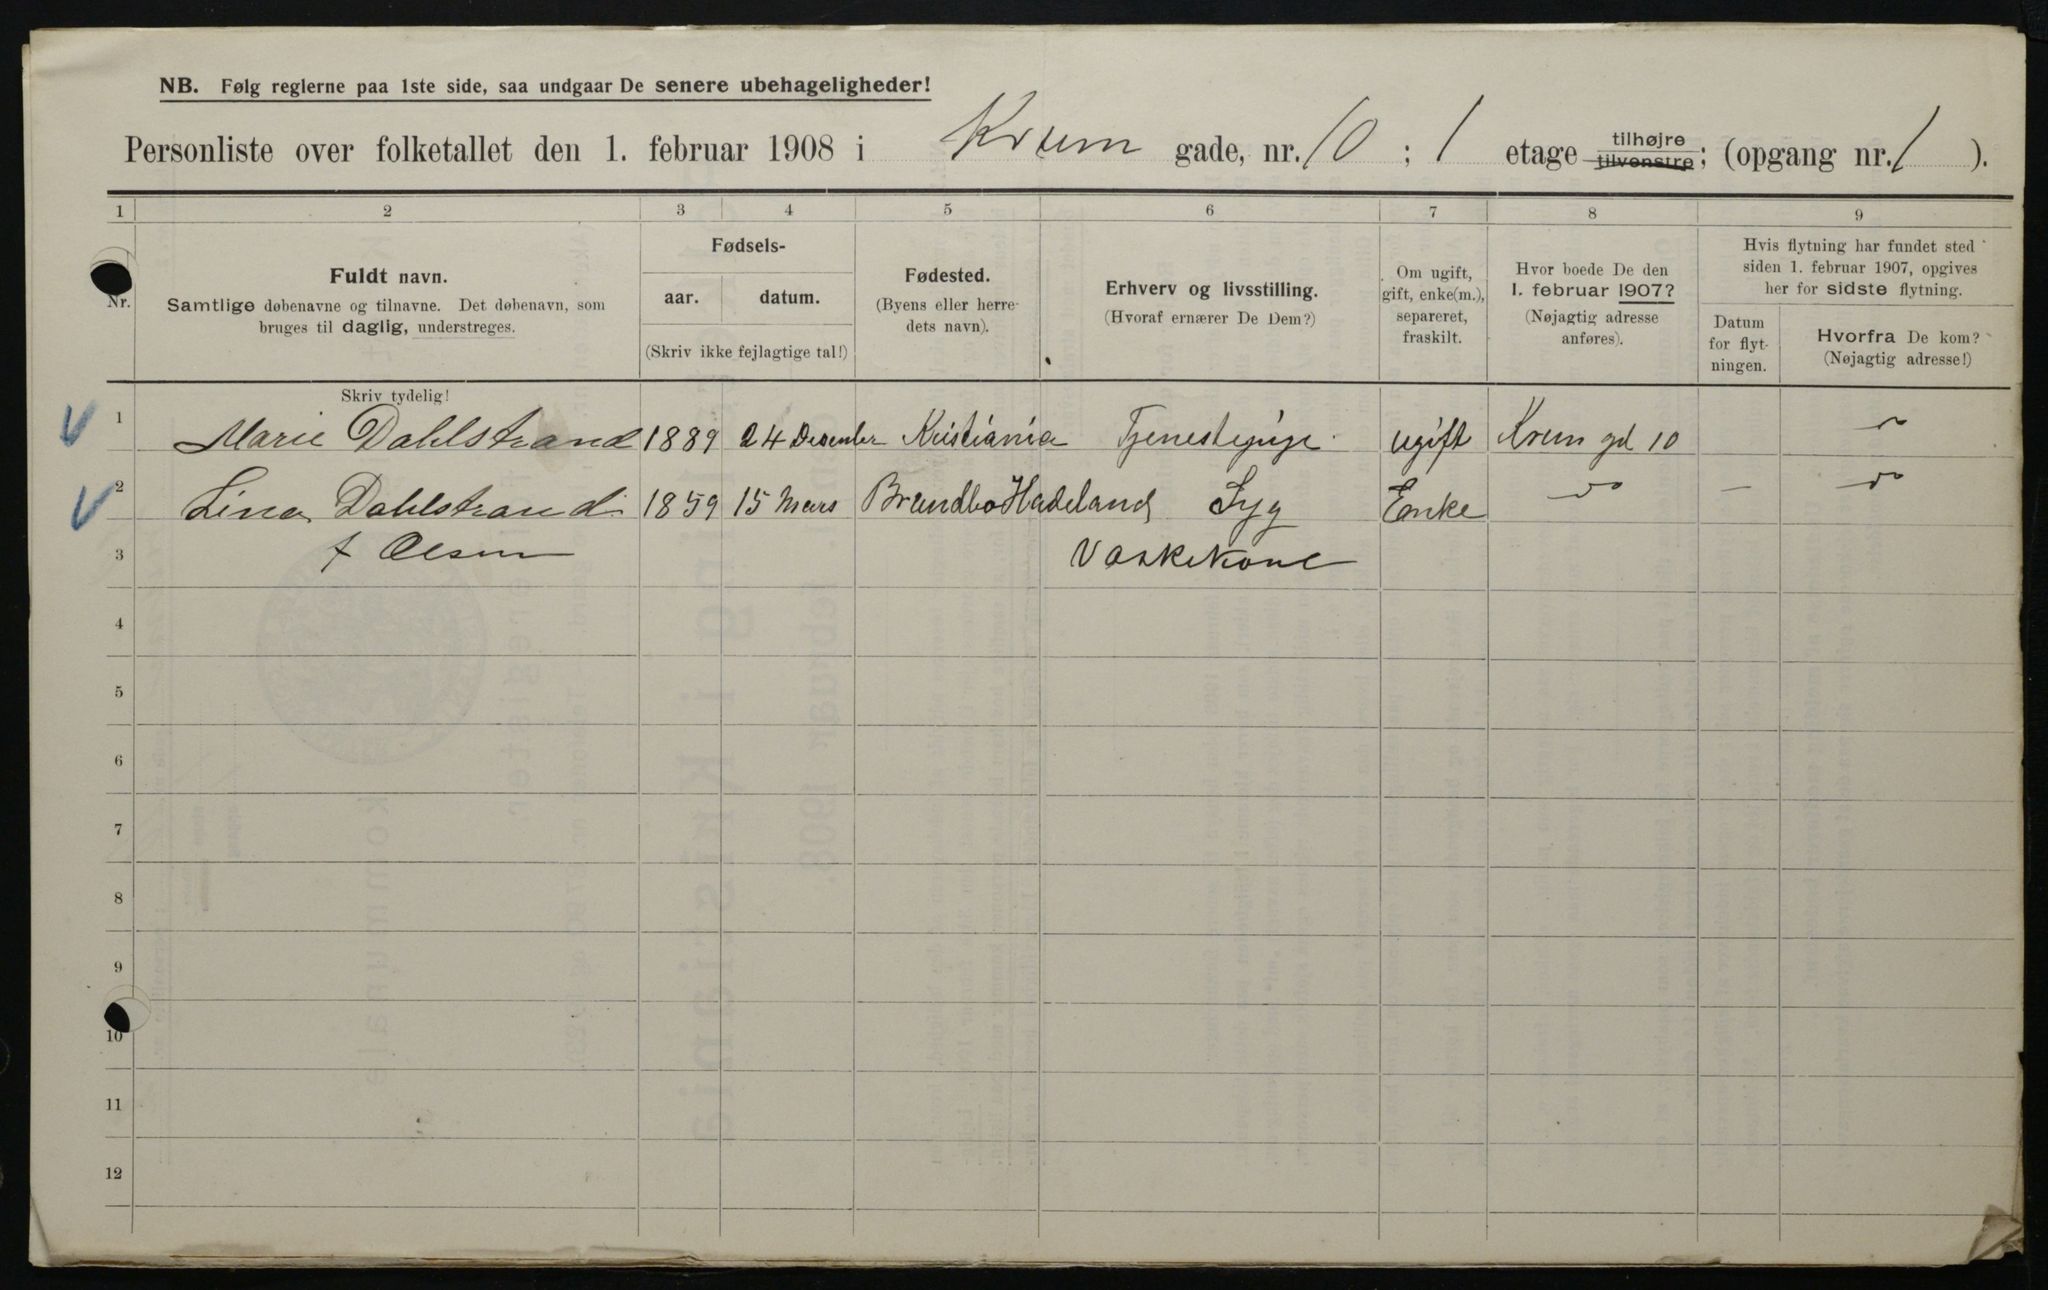 NB. Følg reglerne paa 1ste side, saa undgaar De senere ubehageligheder!
Personliste over folketallet den 1. februar 1908 i Krum gade, nr. 10; 1 etage tilhøjre tilvenstre; (opgang nr. 1).
1 2 3 4 5 6 7 8 9
Nr.
Fuldt navn.
Samtlige døbenavne og tilnavne. Det døbenavn, som
bruges til daglig, understreges.
Fødsels-
aar. datum.
(Skriv ikke fejlagtige tal!)
Fødested.
(Byens eller herre-
dets navn).
Erhverv og livsstilling.
(Hvoraf ernærer De Dem?)
Om ugift,
gift, enke(m.),
separeret,
fraskilt.
Hvor boede De den
1. februar 1907?
(Nøjagtig adresse
anføres).
Hvis flytning har fundet sted
siden 1. februar 1907, opgives
her for sidste flytning.
Datum
for flyt-
ningen.
Hvorfra De kom?
(Nøjagtig adresse!)
Skriv tydelig!
1 Marie Dahlstrand 1889 24 Desember Kristiania ugift Krum gd 10
2 Lina Dahlstrand 1859 15 Mars Hadeland Syg Enke —
3 f Olsen Vaskekone
4
5
6
7
8
9
10
11
12